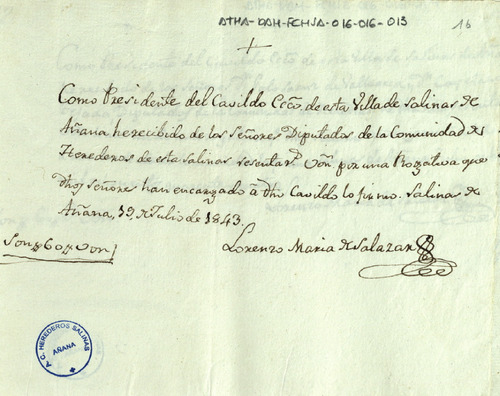 ATHA-DAH-FCHSA-016-016-013
16
+
Como Presidente del Cavildo Ecco. de esta Villa de Salinas de
Añana he recibido de los Señores Diputados de la Comunidad de
Herederos de esta Salinas sesenta rs. von. por una Rogativa que
dhos señores han encargado á dho Cavildo lo firmo. Salinas de
Añana, 19, de Julio de 1843.
Son 60 von
Lorenzo Maria de Salazar
C. G. HEREDEROS SALINAS
AÑANA